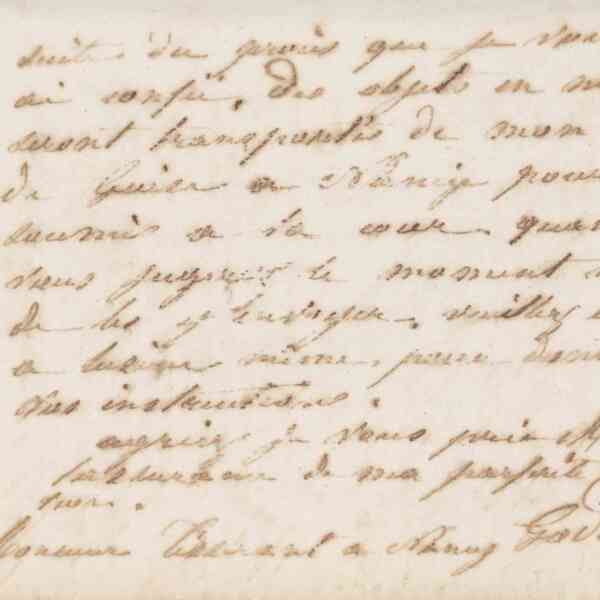 suite du procès que je vous
ai confié. Des objets en
seront transportés de mon
de Guise a Nancy pour
soumis a la cour. quand
vous jugerez le moment
de les y envoyer, veuillez
a Guise même, pour
vos instructions.
agriez je vous prie
lassurance de ma parfaite
Monsieur a Nancy God